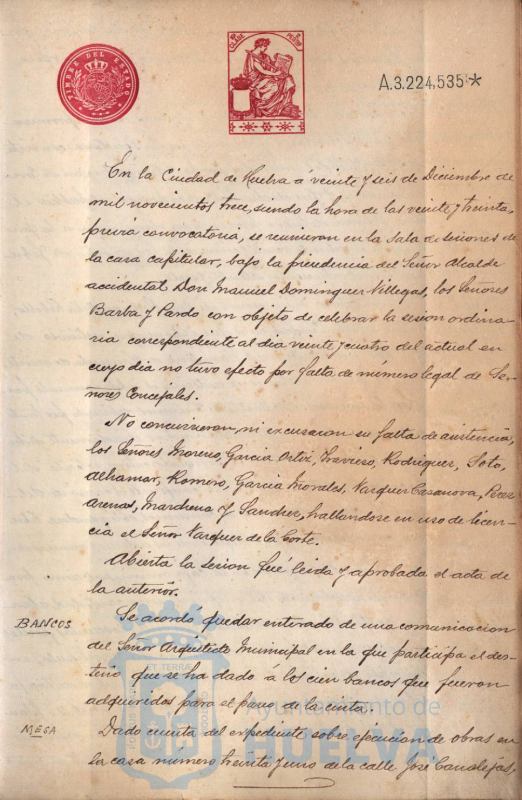 TIMBRE DEL ESTADO
CLASE
A.3.224,535*
En la Ciudad de Huelva á veinte y seis de Diciembre de
mil novecientos trece, siendo la hora de las veinte y treinta,
previa convocatoria, se reunieron en la Sala de sesiones de
la casa capitular, bajo la presidencia del Señor Alcalde
accidental Don Manuel Dominguez Villegas, los Señores
Barba y Pardo con objeto de celebrar la sesion ordina-
ria correspondiente al dia veinte y cuatro del actual en
cuyo dia no tuvo efecto por falta de número legal de Se-
ñores Concejales.
No concurrieron, ni excusaron su falta de asistencia,
los Señores Moreno, Garcia Ortiz, Travieso, Rodriguez, Soto,
Alhamar, Romero, Garcia Morales, Vazquez Casanova, Perez
Arenas, Marchena y Sanchez, hallandose en uso de licen-
cia el Señor Vazquez de la Corte.
Abierta la sesion fué leida y aprobada el acta de
la anterior.
BANCOS
Se acordó quedar enterado de una comunicacion
del Señor Arquitecto Municipal en la que participa el des-
tino que se ha dado á los cien bancos que fueron
adquiridos para el paseo de la cinta.
MESA
Dado cuenta del expediente sobre ejecucion de obras en
la casa número treinta y uno de la calle José Canalejas,
Ayuntamiento de
HUELVA